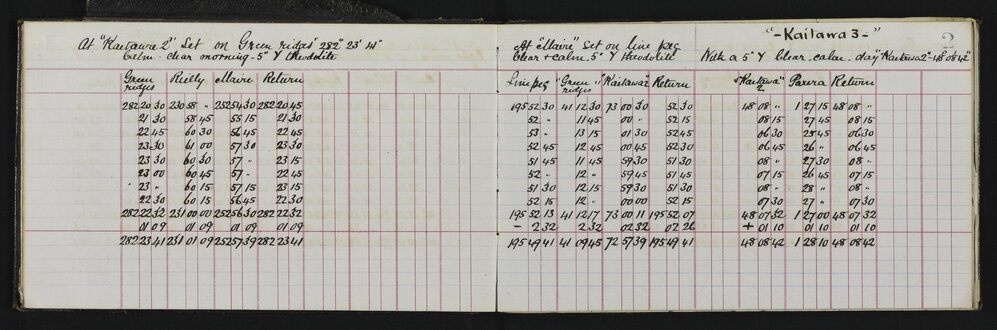 At "Kaitawa 2" Set on Green ridges 282° 23' 41"
Calm. clear morning - 5" Y theodolite
Green ridges Rielly Maire Return
282 20 30 230 58 " 252 54 30 282 20 45
21 30 58 45 55 15 21 30
22 45 60 30 56 45 22 45
23 30 61 00 57 30 23 30
23 30 60 30 57 " 23 15
23 00 60 45 57 " 22 45
23 " 60 15 57 15 23 15
22 30 60 15 56 45 22 30
282 22 32 231 00 00 252 56 30 282 22 32
01 09 01 09 01 09 01 09
282 23 41 231 01 09 252 57 39 282 23 41
At "Maire" set on line peg
Clear & calm. 5" Y theodolite
Line peg "Green ridges" "Kaitawa" 2 Return
195 52 30 41 12 30 73 00 30 52 30
52 " 11 45 00 " 52 15
53 " 13 15 01 30 52 45
52 45 12 45 00 45 52 30
51 45 11 45 59 30 51 30
52 " 12 " 59 45 51 45
51 30 12 15 59 30 51 30
52 15 12 " 00 30 52 "
195 52 13 41 12 17 73 00 11 195 52 07
- 2 32 2 32 02 32 02 26
195 49 41 41 09 45 72 57 39 195 49 41
"-Kaitawa 3-" 2
With a 5" Y Clear. calm. day "Kaitawa 2" - 48° 08' 42"
"Kaitawa" 2 Parera Return
48 08 " 1 27 15 48 08 "
08 15 27 45 08 15
06 30 25 45 06 30
06 45 26 " 06 45
08 " 27 30 08 "
07 15 26 45 07 15
08 " 28 " 08 "
07 30 27 " 07 30
48 07 32 1 27 00 48 07 32
+ 01 10 01 10 01 10
48 08 42 1 28 10 48 08 42